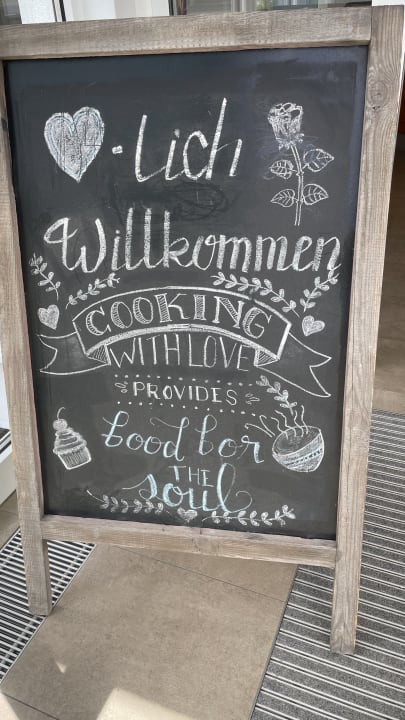 -lich
Willkommen
COOKING
WITH LOVE
PROVIDES
food for
THE
soul